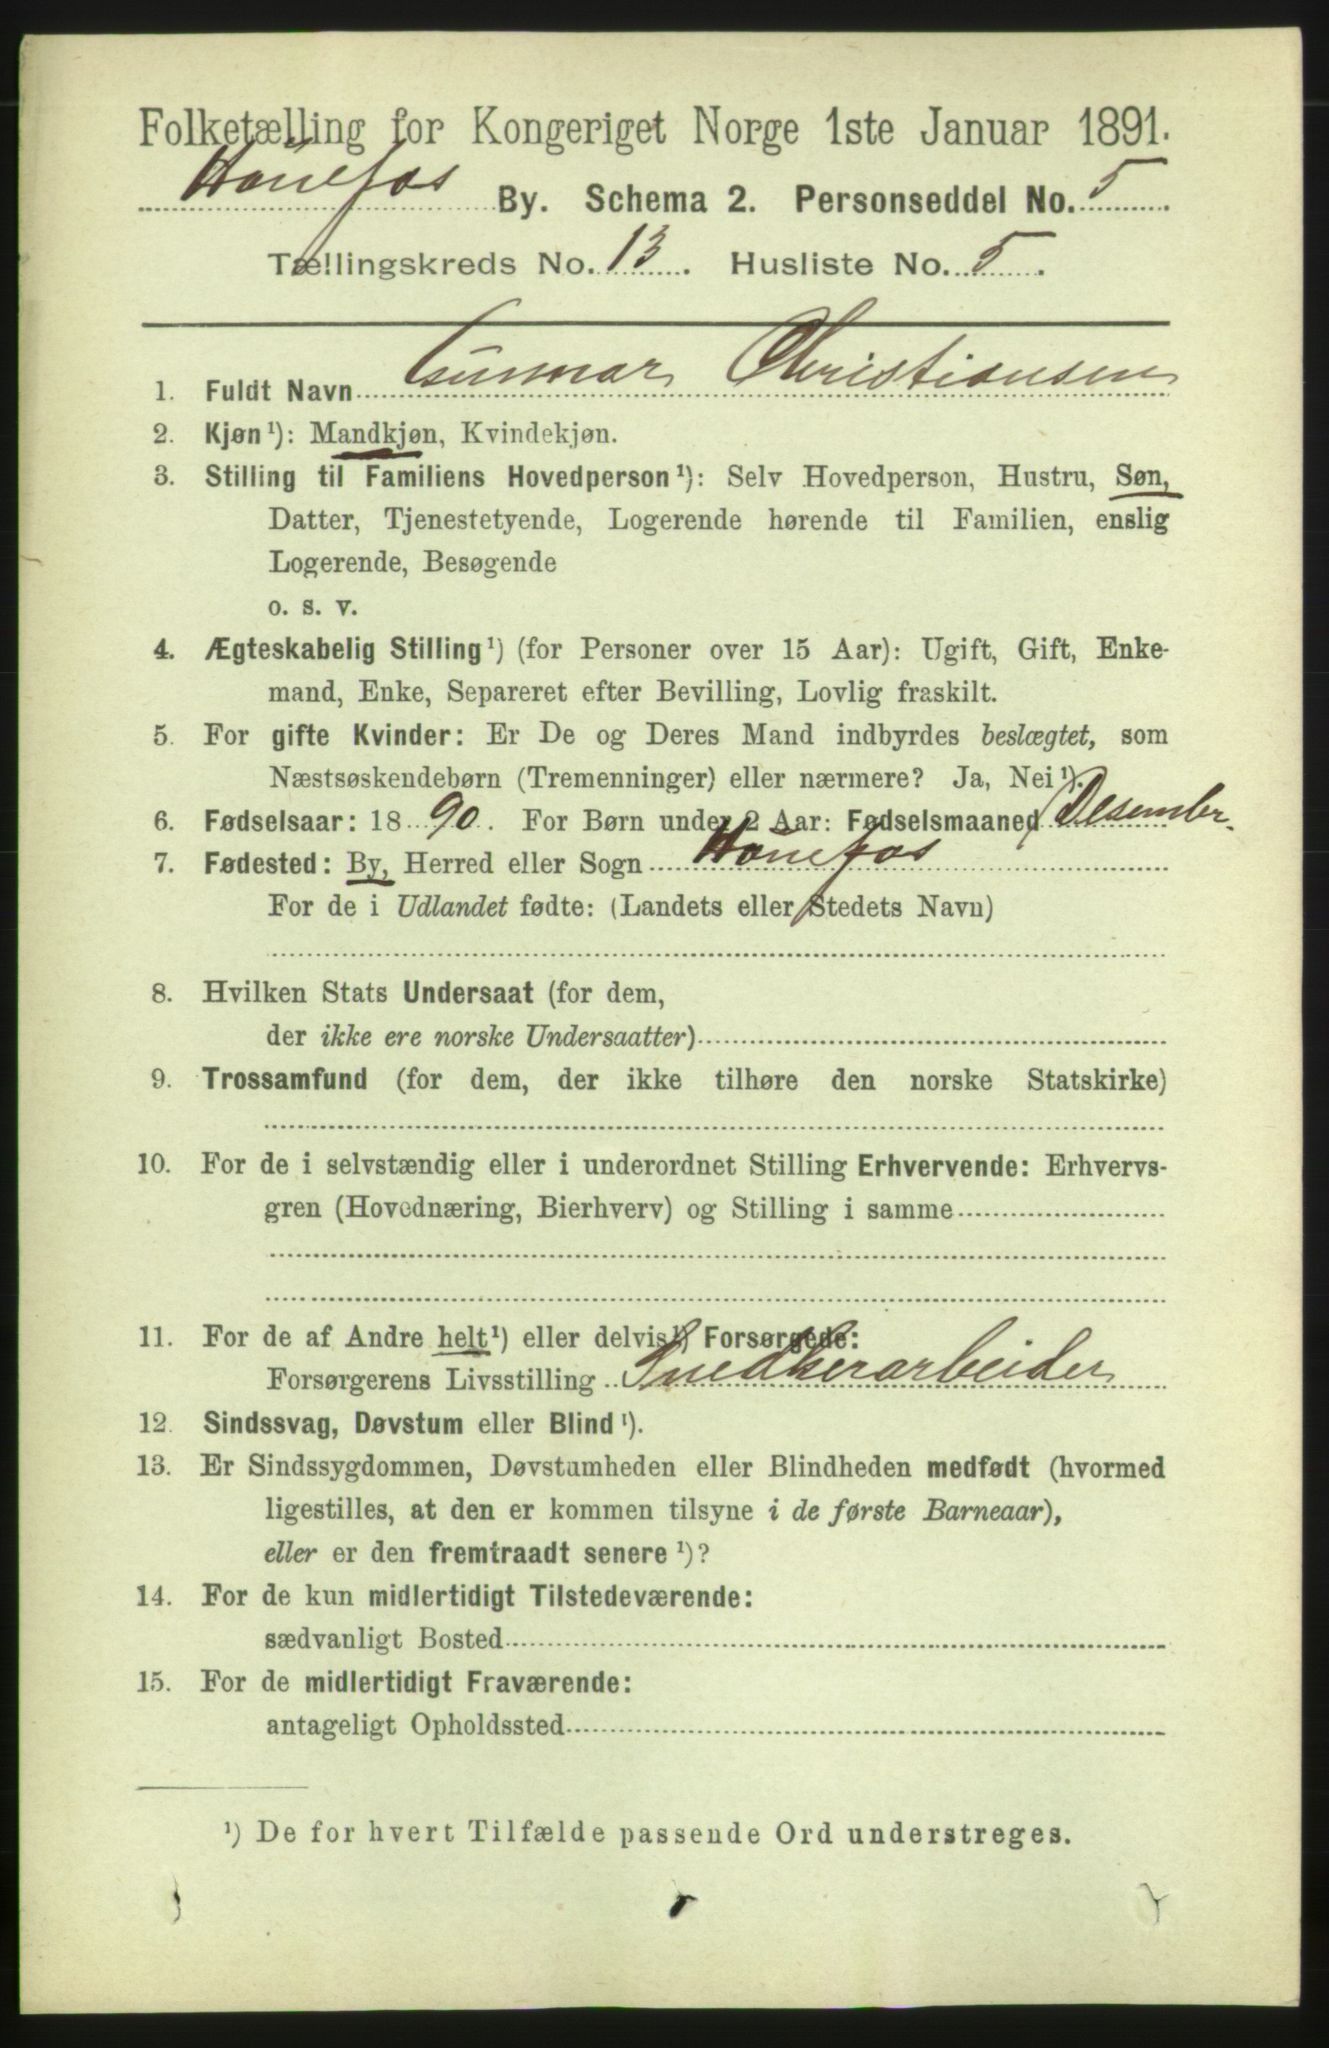 Folketælling for Kongeriget Norge 1ste Januar 1891.
Hønefos By. Schema 2. Personseddel No. 5
Tællingskreds No. 13. Husliste No. 5.
1. Fuldt Navn Gunnar Christiansen
2. Kjøn¹): Mandkjøn, Kvindekjøn.
3. Stilling til Familiens Hovedperson¹): Selv Hovedperson, Hustru, Søn,
Datter, Tjenestetyende, Logerende hørende til Familien, enslig
Logerende, Besøgende
o. s. v.
4. Ægteskabelig Stilling¹) (for Personer over 15 Aar): Ugift, Gift, Enke-
mand, Enke, Separeret efter Bevilling, Lovlig fraskilt.
5. For gifte Kvinder: Er De og Deres Mand indbyrdes beslægtet, som
Næstsøskendebørn (Tremenninger) eller nærmere? Ja, Nei¹).
6. Fødselsaar: 1890. For Børn under 2 Aar: Fødselsmaaned Desember.
7. Fødested: By, Herred eller Sogn Hønefos
For de i Udlandet fødte: (Landets eller Stedets Navn)
8. Hvilken Stats Undersaat (for dem,
der ikke ere norske Undersaatter)
9. Trossamfund (for dem, der ikke tilhøre den norske Statskirke)
10. For de i selvstændig eller i underordnet Stilling Erhvervende: Erhvervs-
gren (Hovednæring, Bierhverv) og Stilling i samme
11. For de af Andre helt¹) eller delvis¹) Forsørgede:
Forsørgerens Livsstilling Snedkerarbeider
12. Sindssvag, Døvstum eller Blind¹).
13. Er Sindssygdommen, Døvstumheden eller Blindheden medfødt (hvormed
ligestilles, at den er kommen tilsyne i de første Barneaar),
eller er den fremtraadt senere¹)?
14. For de kun midlertidigt Tilstedeværende:
sædvanligt Bosted
15. For de midlertidigt Fraværende:
antageligt Opholdssted
¹) De for hvert Tilfælde passende Ord understreges.